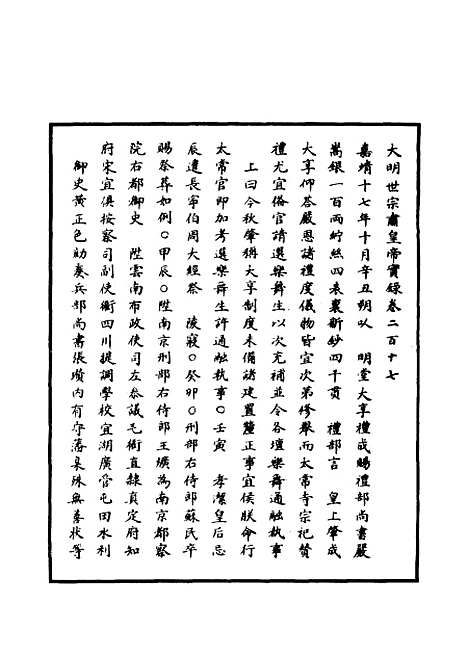 大明世宗肅皇帝實錄卷二百十七
嘉靖十七年十月辛丑朔以　明堂大享禮成賜禮部尚書嚴
嵩銀一百兩紵絲四表裏新鈔四千貫　禮部言　皇上肇成
大享仰答嚴恩諸禮度儀物皆宜次第修舉而太常寺宗祀贊
禮尤宜備官請選樂舞生以次充補並令各壇樂舞通融執事
上曰今秋肇稱大享制度未備諸建置釐正事宜俟朕命行
太常官即加考選樂舞生許通融執事○壬寅　孝潔皇后忌
辰遣長寧伯周大經祭　陵寢○癸卯○刑部右侍郎蘇民卒
賜祭葬如例○甲辰○陞南京刑部右侍郎王爌為南京都察
院右都御史　陞雲南布政使司左參議毛衢直隸真定府知
府宋宜俱按察司副使衢四川提調學校宜湖廣管屯田水利
御史黃正色劾奏兵部尚書張瓚內有守藩臬殊無善狀等